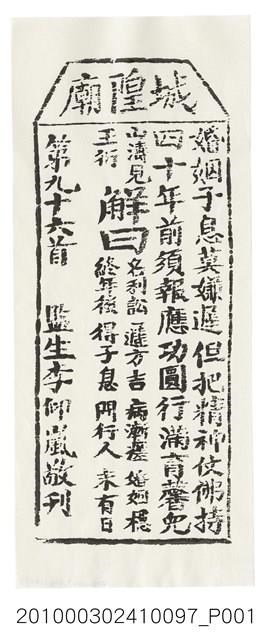 城隍廟
婚姻子息莫嫌遲但把精神仗佛持
四十年前須報應功圓行滿育馨兒
山濤見王衍
解曰
名利訟 遲方吉 病漸瘥 婚姻穩
終年後 得子息 問行人 來有日
第九十六首 監生李仰嵐敬刊
201000302410097_P001